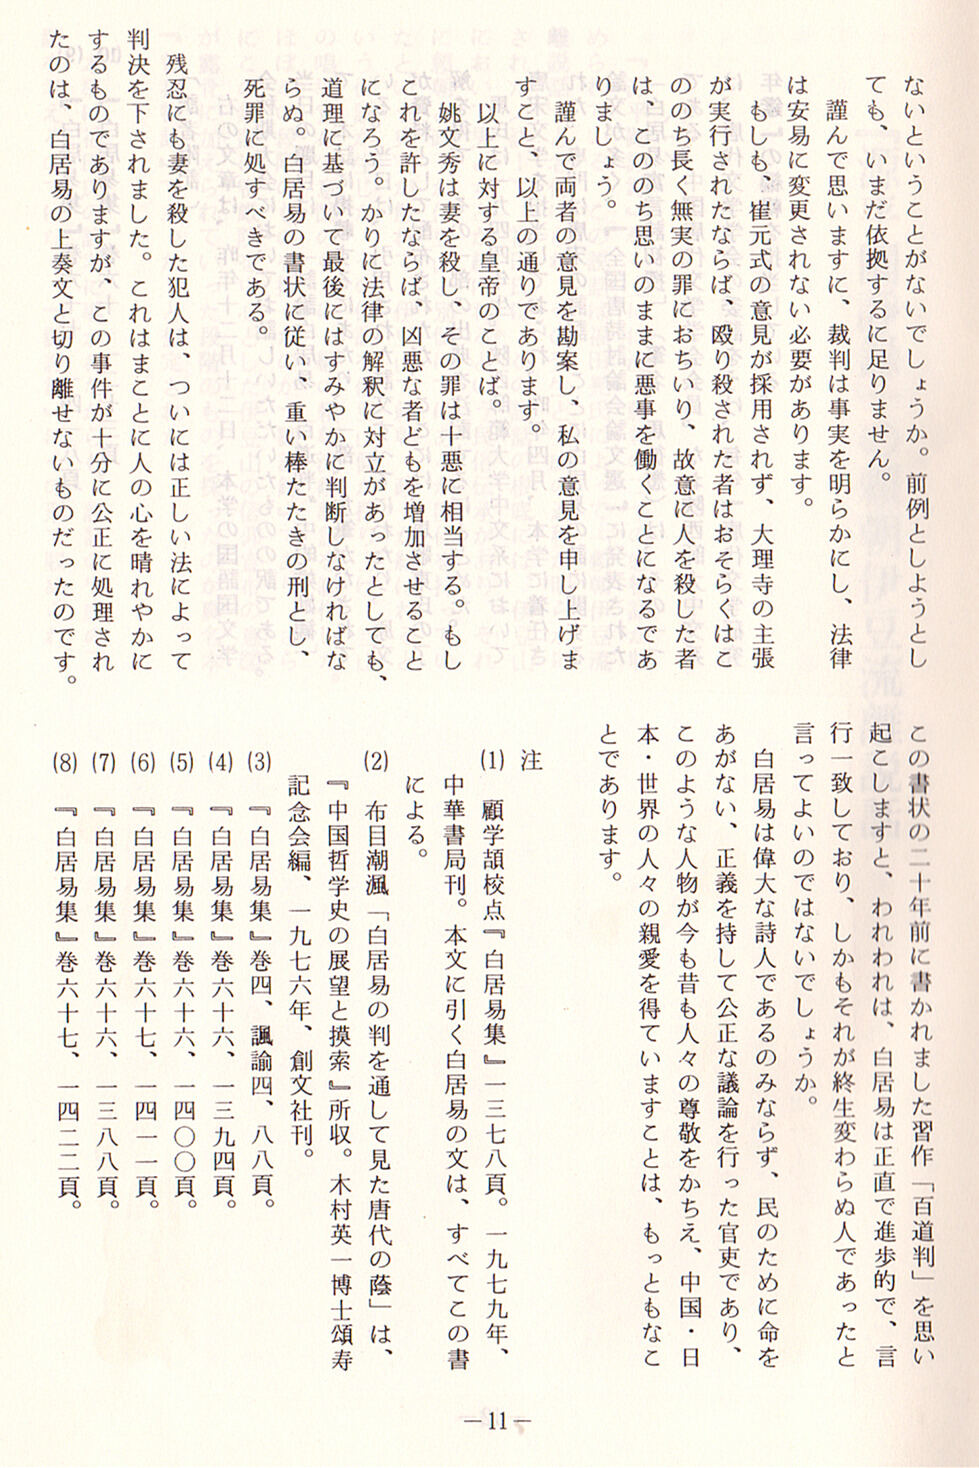 ないということがないでしょうか。前例としようとし
ても、いまだ依拠するに足りません。
謹んで思いますに、裁判は事実を明らかにし、法律
は安易に変更されない必要があります。
もしも、崔元式の意見が採用されず、大理寺の主張
が実行されたならば、殴り殺された者はおそらくはこ
ののち長く無実の罪におちいり、故意に人を殺した者
は、こののち思いのままに悪事を働くことになるであ
りましょう。
謹んで両者の意見を勘案し、私の意見を申し上げま
すこと、以上の通りであります。
以上に対する皇帝のことば。
姚文秀は妻を殺し、その罪は十悪に相当する。もし
これを許したならば、凶悪な者どもを増加させること
になろう。かりに法律の解釈に対立があったとしても、
道理に基づいて最後にはすみやかに判断しなければな
らぬ。白居易の書状に従い、重い棒たたきの刑とし、
死罪に処すべきである。
残忍にも妻を殺した犯人は、ついには正しい法によって
判決を下されました。これはまことに人の心を晴れやかに
するものでありますが、この事件が十分に公正に処理され
たのは、白居易の上奏文と切り離せないものだったのです。
この書状の二十年前に書かれました習作「百道判」を思い
起こしますと、われわれは、白居易は正直で進歩的で、言
行一致しており、しかもそれが終生変わらぬ人であったと
言ってよいのではないでしょうか。
白居易は偉大な詩人であるのみならず、民のために命を
あがない、正義を持して公正な議論を行った官吏であり、
このような人物が今も昔も人々の尊敬をかちえ、中国・日
本・世界の人々の親愛を得ていますことは、もっともなこ
とであります。
注
(1) 顧学頡校点『白居易集』一三七八頁。一九七九年、
中華書局刊。本文に引く白居易の文は、すべてこの書
による。
(2) 布目潮渢「白居易の判を通して見た唐代の蔭」は、
『中国哲学史の展望と摸索』所収。木村英一博士頌寿
記念会編、一九七六年、創文社刊。
(3) 『白居易集』巻四、諷諭四、八八頁。
(4) 『白居易集』巻六十六、一三九四頁。
(5) 『白居易集』巻六十六、一四〇〇頁。
(6) 『白居易集』巻六十七、一四一一頁。
(7) 『白居易集』巻六十六、一三八八頁。
(8) 『白居易集』巻六十七、一四二二頁。
—11—